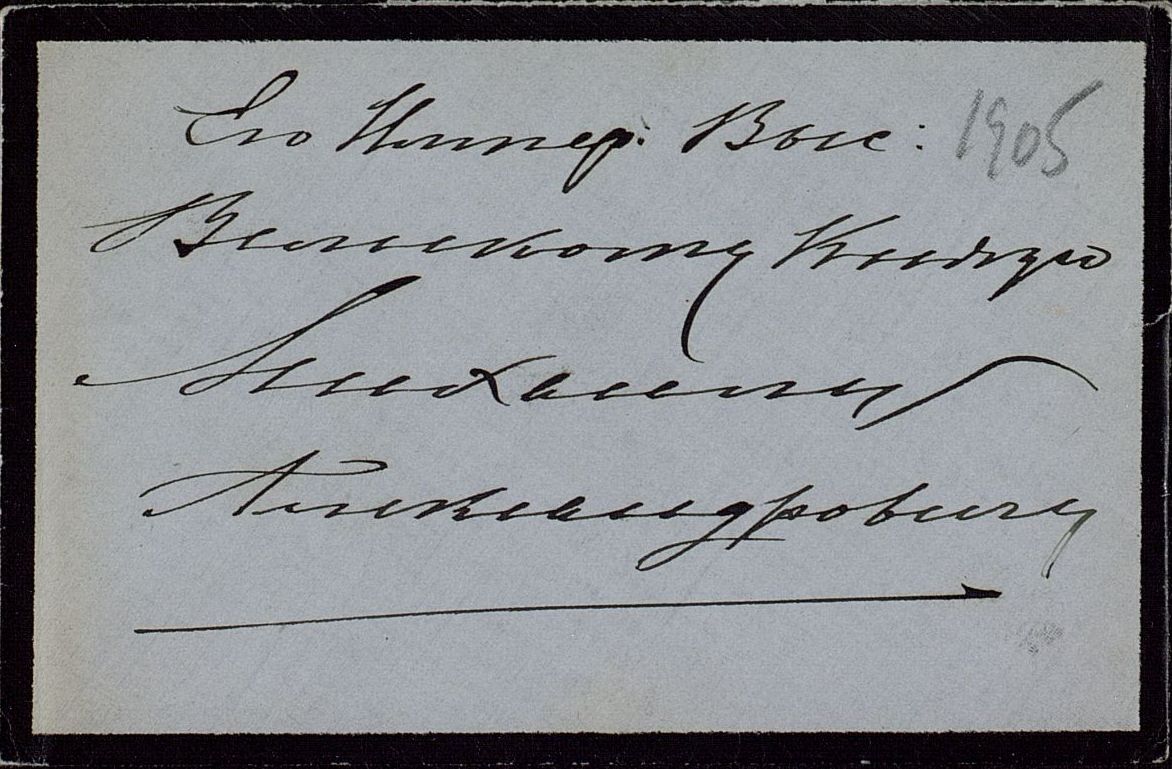 Его Импер: Выс: 1905
Великому Князю
Михаилу
Александровичу